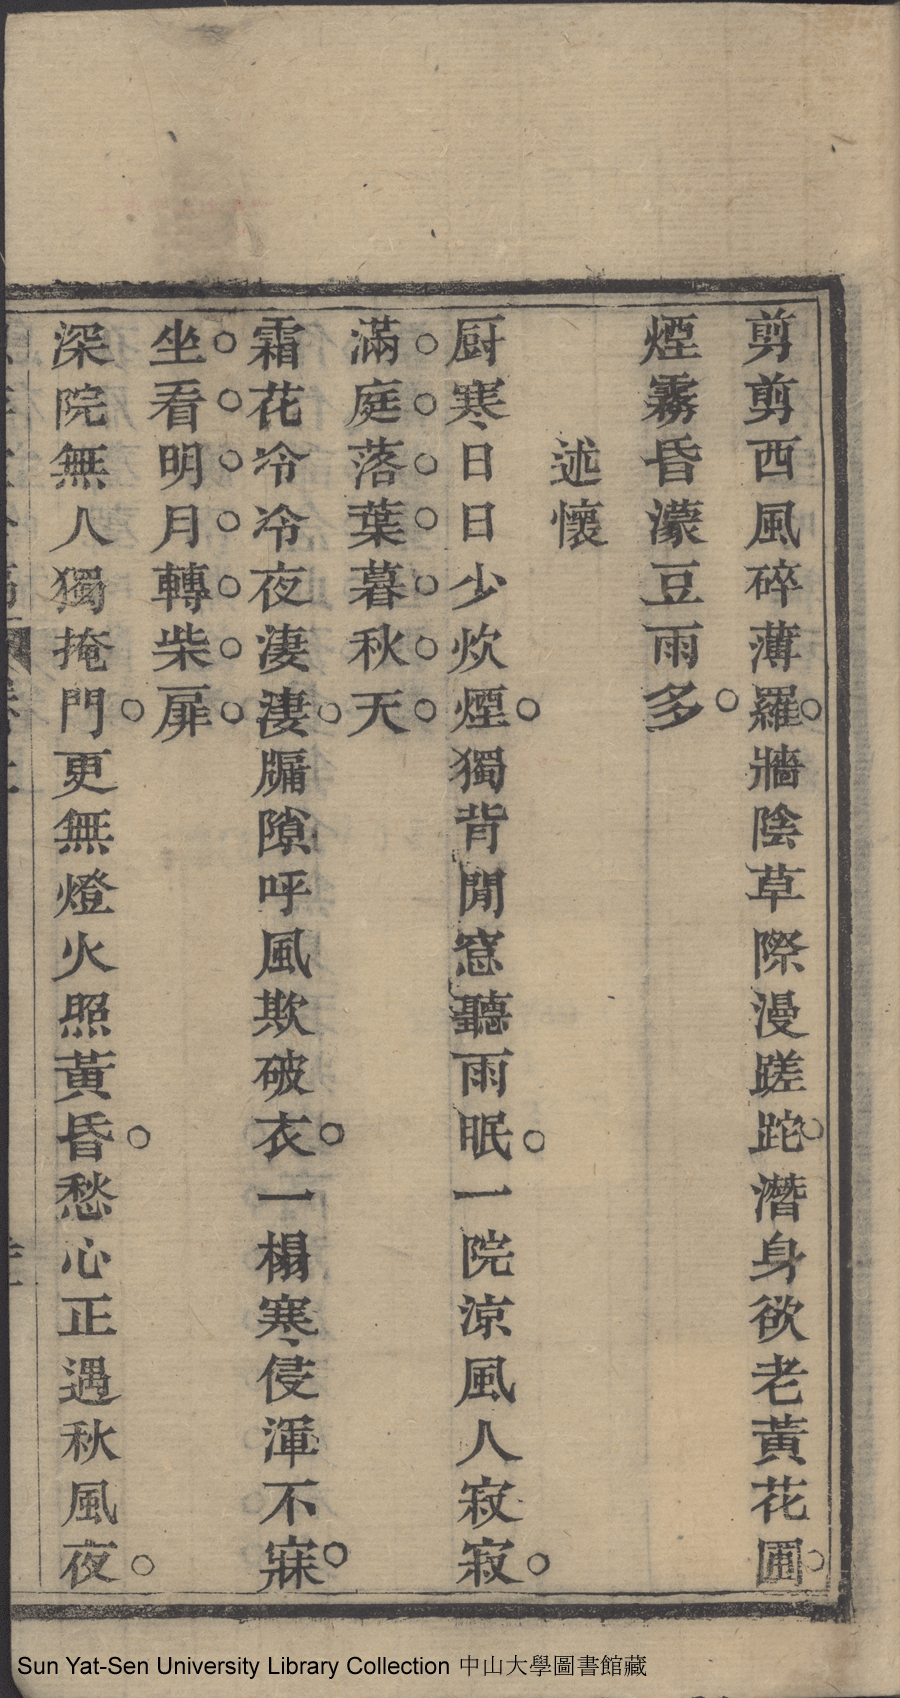 剪剪西風碎薄羅牆陰草際漫蹉跎潛身欲老黃花圃
煙霧昏濛豆雨多
述懷
厨寒日日少炊煙獨背閒窓聽雨眠一院涼風人寂寂
滿庭落葉暮秋天
霜花冷冷夜淒淒牖隙呼風欺破衣一榻寒侵渾不寐
坐看明月轉柴扉
深院無人獨掩門更無燈火照黃昏愁心正遇秋風夜
Sun Yat-Sen University Library Collection 中山大學圖書館藏